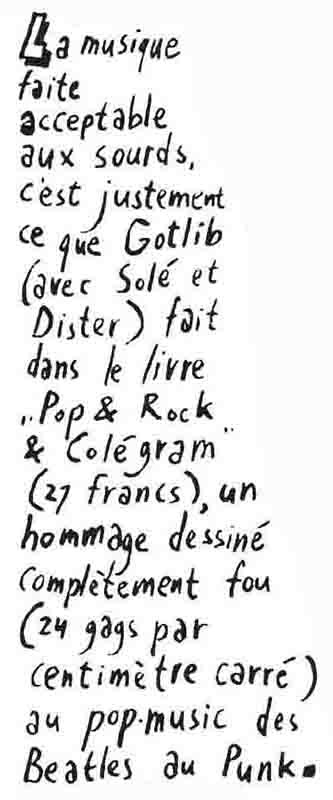 La musique
faite
acceptable
aux sourds,
c'est justement
ce que Gotlib
(avec Solé et
Dister) fait
dans le livre
„Pop & Rock
& Colégram"
(27 francs), un
hommage dessiné
complètement fou
(24 gags par
centimètre carré)
au pop-music des
Beatles au Punk.